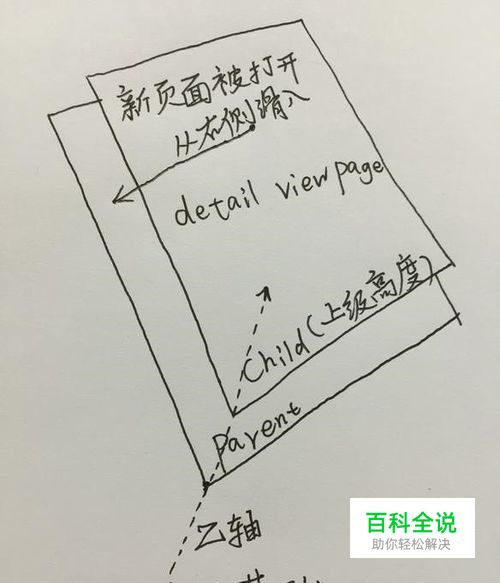 新页面被打开
从右侧滑入
detail view page
Child(上级高度)
Parent
Z轴
百科全说
助你轻松解决